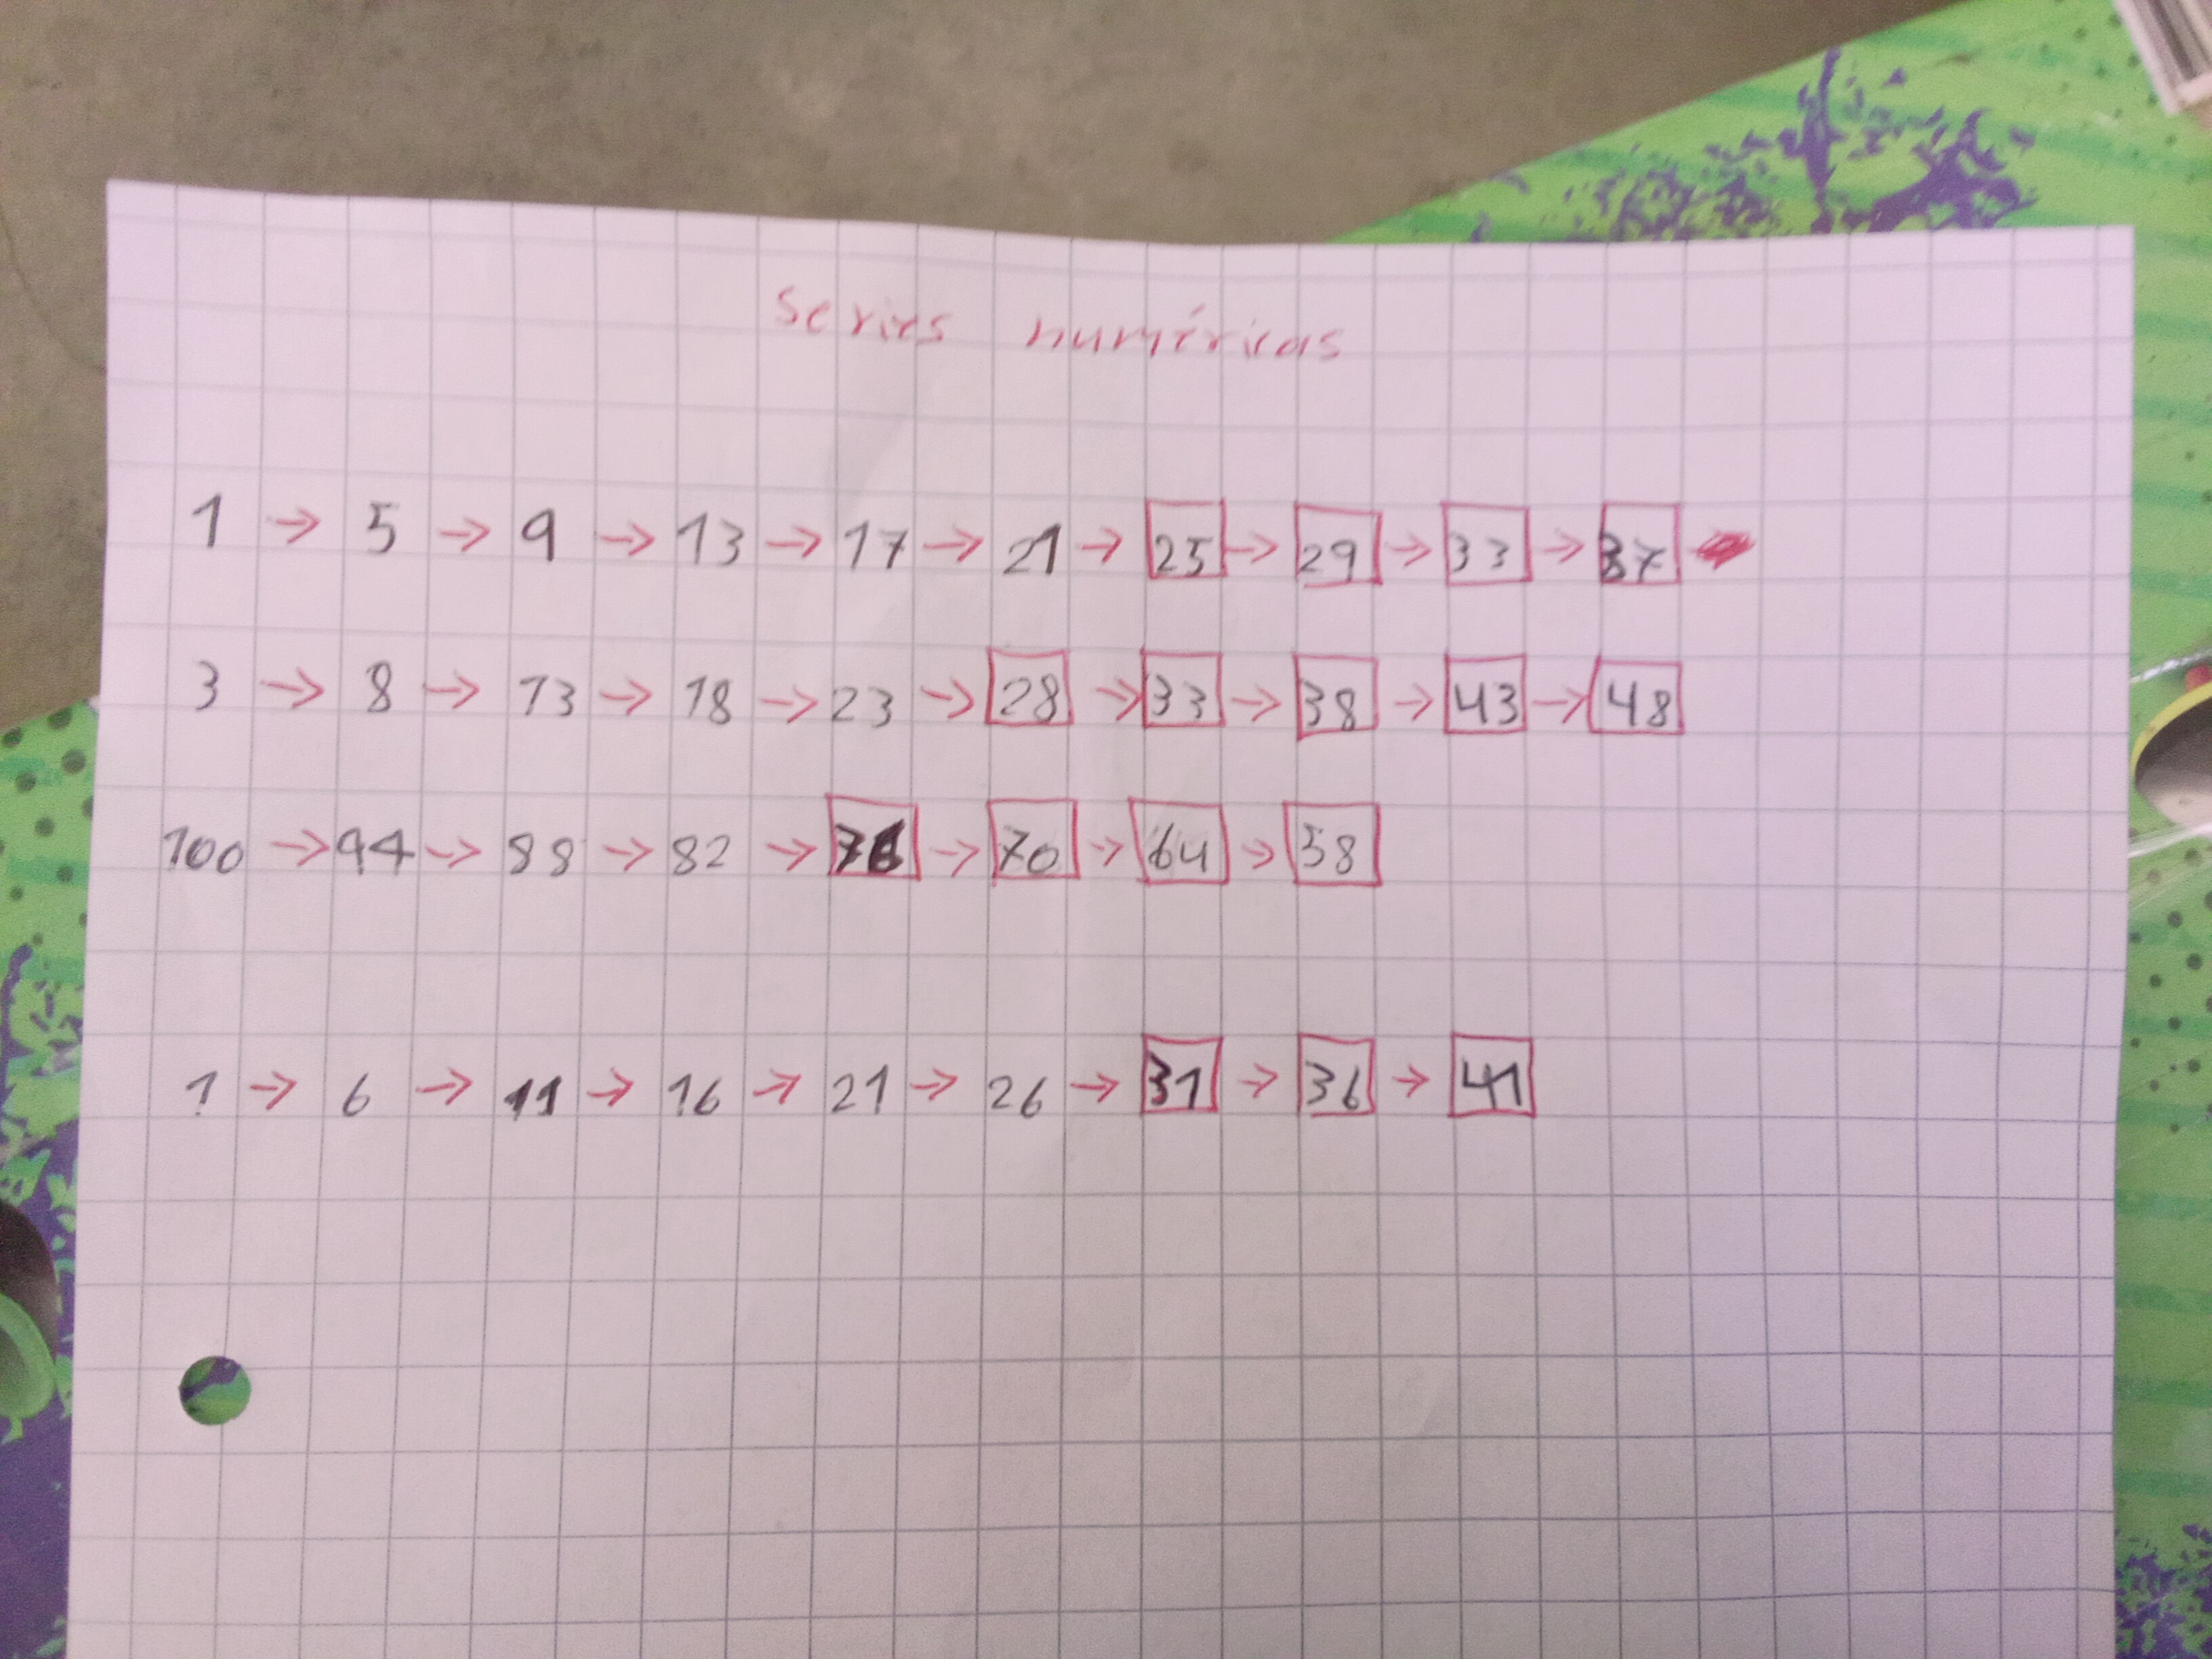 series numéricas
1 → 5 → 9 → 13 → 17 → 21 → 25 → 29 → 33 → 37
3 → 8 → 13 → 18 → 23 → 28 → 33 → 38 → 43 → 48
100 → 94 → 88 → 82 → 76 → 70 → 64 → 58
1 → 6 → 11 → 16 → 21 → 26 → 31 → 36 → 41